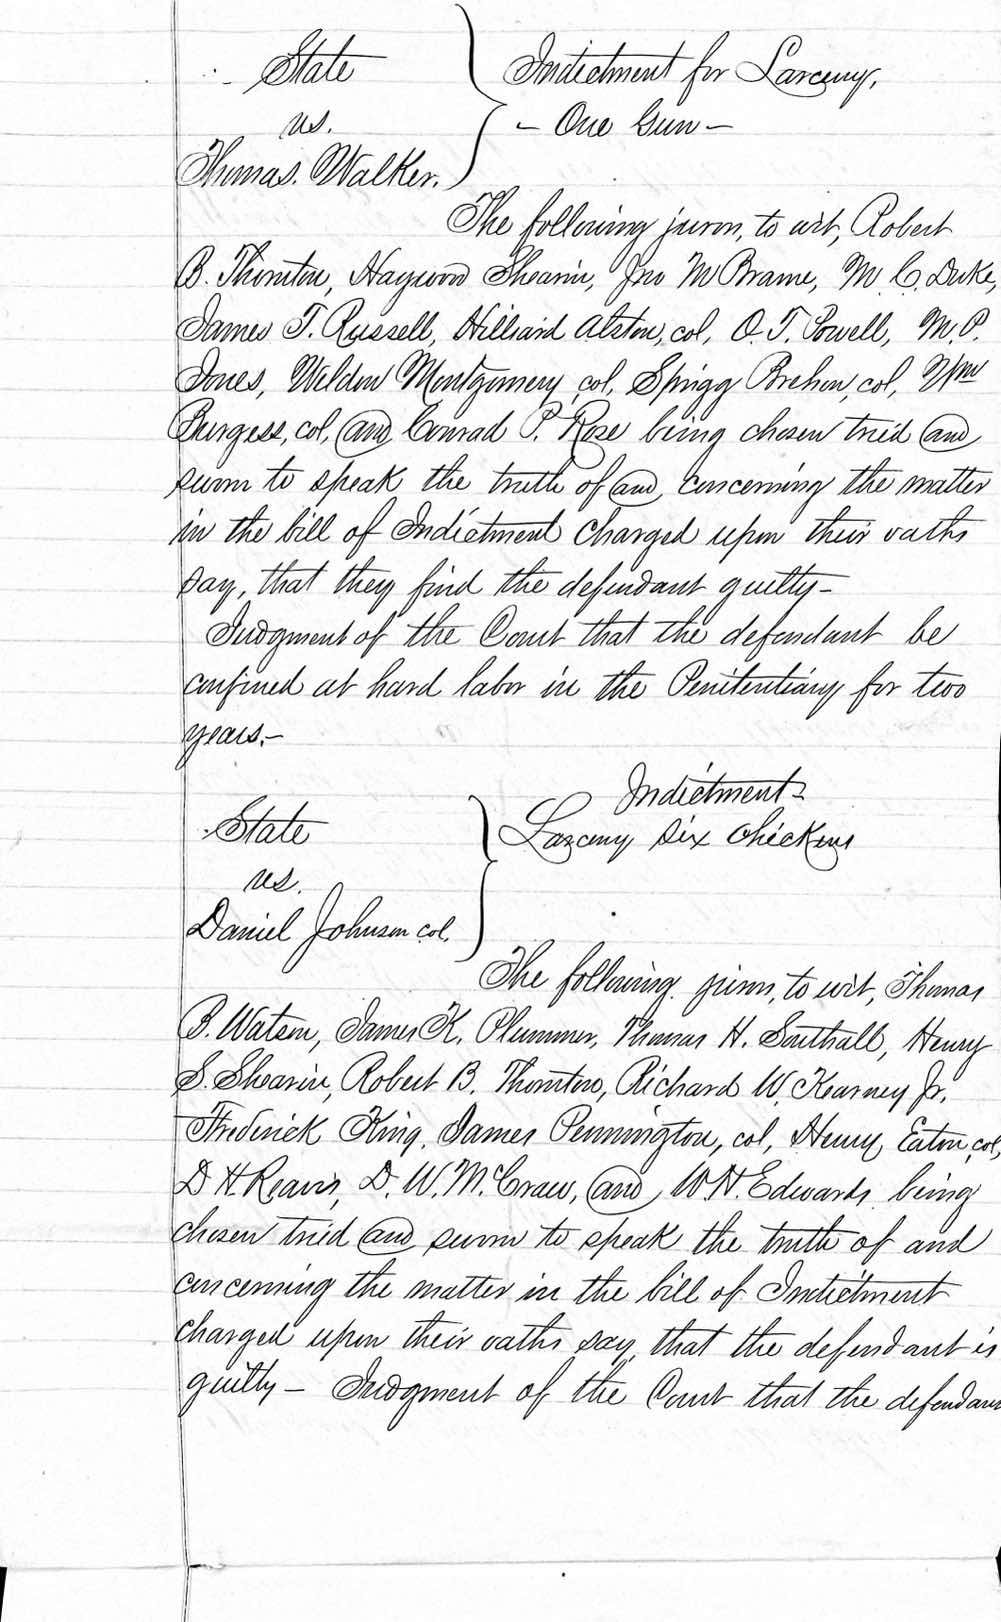 State
vs.
Thomas. Walker.
Indictment for Larceny,
– One Gun –
The following jurors, to wit, Robert
B. Thornton, Haywood Shearin, Jno M Brame, M. C. Duke,
James T. Russell, Hilliard Alston, col, O. T. Powell, M. P.
Jones, Weldon Montgomery, col, Sprigg Brehon, col, Wm
Burgess, col, and Conrad P. Rose being chosen tried and
sworn to speak the truth of and concerning the matter
in the bill of Indictment charged upon their oaths
say, that they find the defendant guilty –
Judgment of the Court that the defendant be
confined at hard labor in the Penitentiary for two
years. –
Indictment –
State
vs.
Daniel Johnson col.
Larceny Six Chickens
The following jurors, to wit, Thomas
B. Watson, James K. Plummer, Thomas H. Southall, Henry
S. Shearin, Robert B. Thornton, Richard W. Kearney Jr.
Frederick King, James Pennington, col, Henry Eaton, col,
D H. Reavis, D. W. McCraw, and W. H. Edwards being
chosen tried and sworn to speak the truth of and
concerning the matter in the bill of Indictment
charged upon their oaths say, that the defendant is
guilty – Judgment of the Court that the defendant